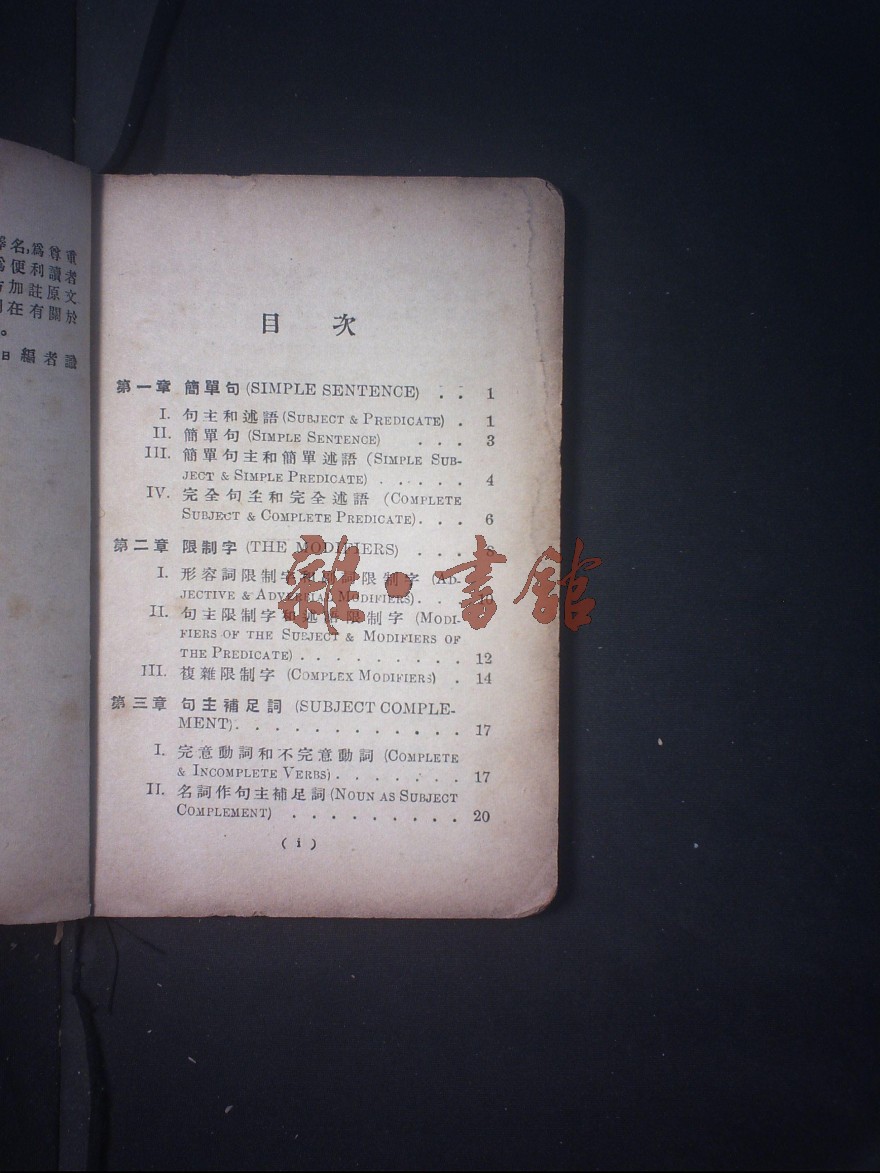 名,爲尊重
便利讀者
加註原文
在有關於
。
日編者識
目 次
第一章 簡單句 (SIMPLE SENTENCE) . . 1
I. 句主和述語 (SUBJECT & PREDICATE) . 1
II. 簡單句 (SIMPLE SENTENCE) . . . 3
III. 簡單句主和簡單述語 (SIMPLE SUB-
JECT & SIMPLE PREDICATE) . . . . . 4
IV. 完全句主和完全述語 (COMPLETE
SUBJECT & COMPLETE PREDICATE) . . . 6
第二章 限制字 (THE MODIFIERS) . . .
I. 形容詞限制字和副詞限制字 (AD-
JECTIVE & ADVERBIAL MODIFIERS) . . .
II. 句主限制字和述語限制字 (MODI-
FIERS OF THE SUBJECT & MODIFIERS OF
THE PREDICATE) . . . . . . . . . 12
III. 複雜限制字 (COMPLEX MODIFIERS) . 14
第三章 句主補足詞 (SUBJECT COMPLE-
MENT) . . . . . . . . . . . . 17
I. 完意動詞和不完意動詞 (COMPLETE
& INCOMPLETE VERBS) . . . . . . . 17
II. 名詞作句主補足詞 (NOUN AS SUBJECT
COMPLEMENT) . . . . . . . . . 20
( i )
雜·書館